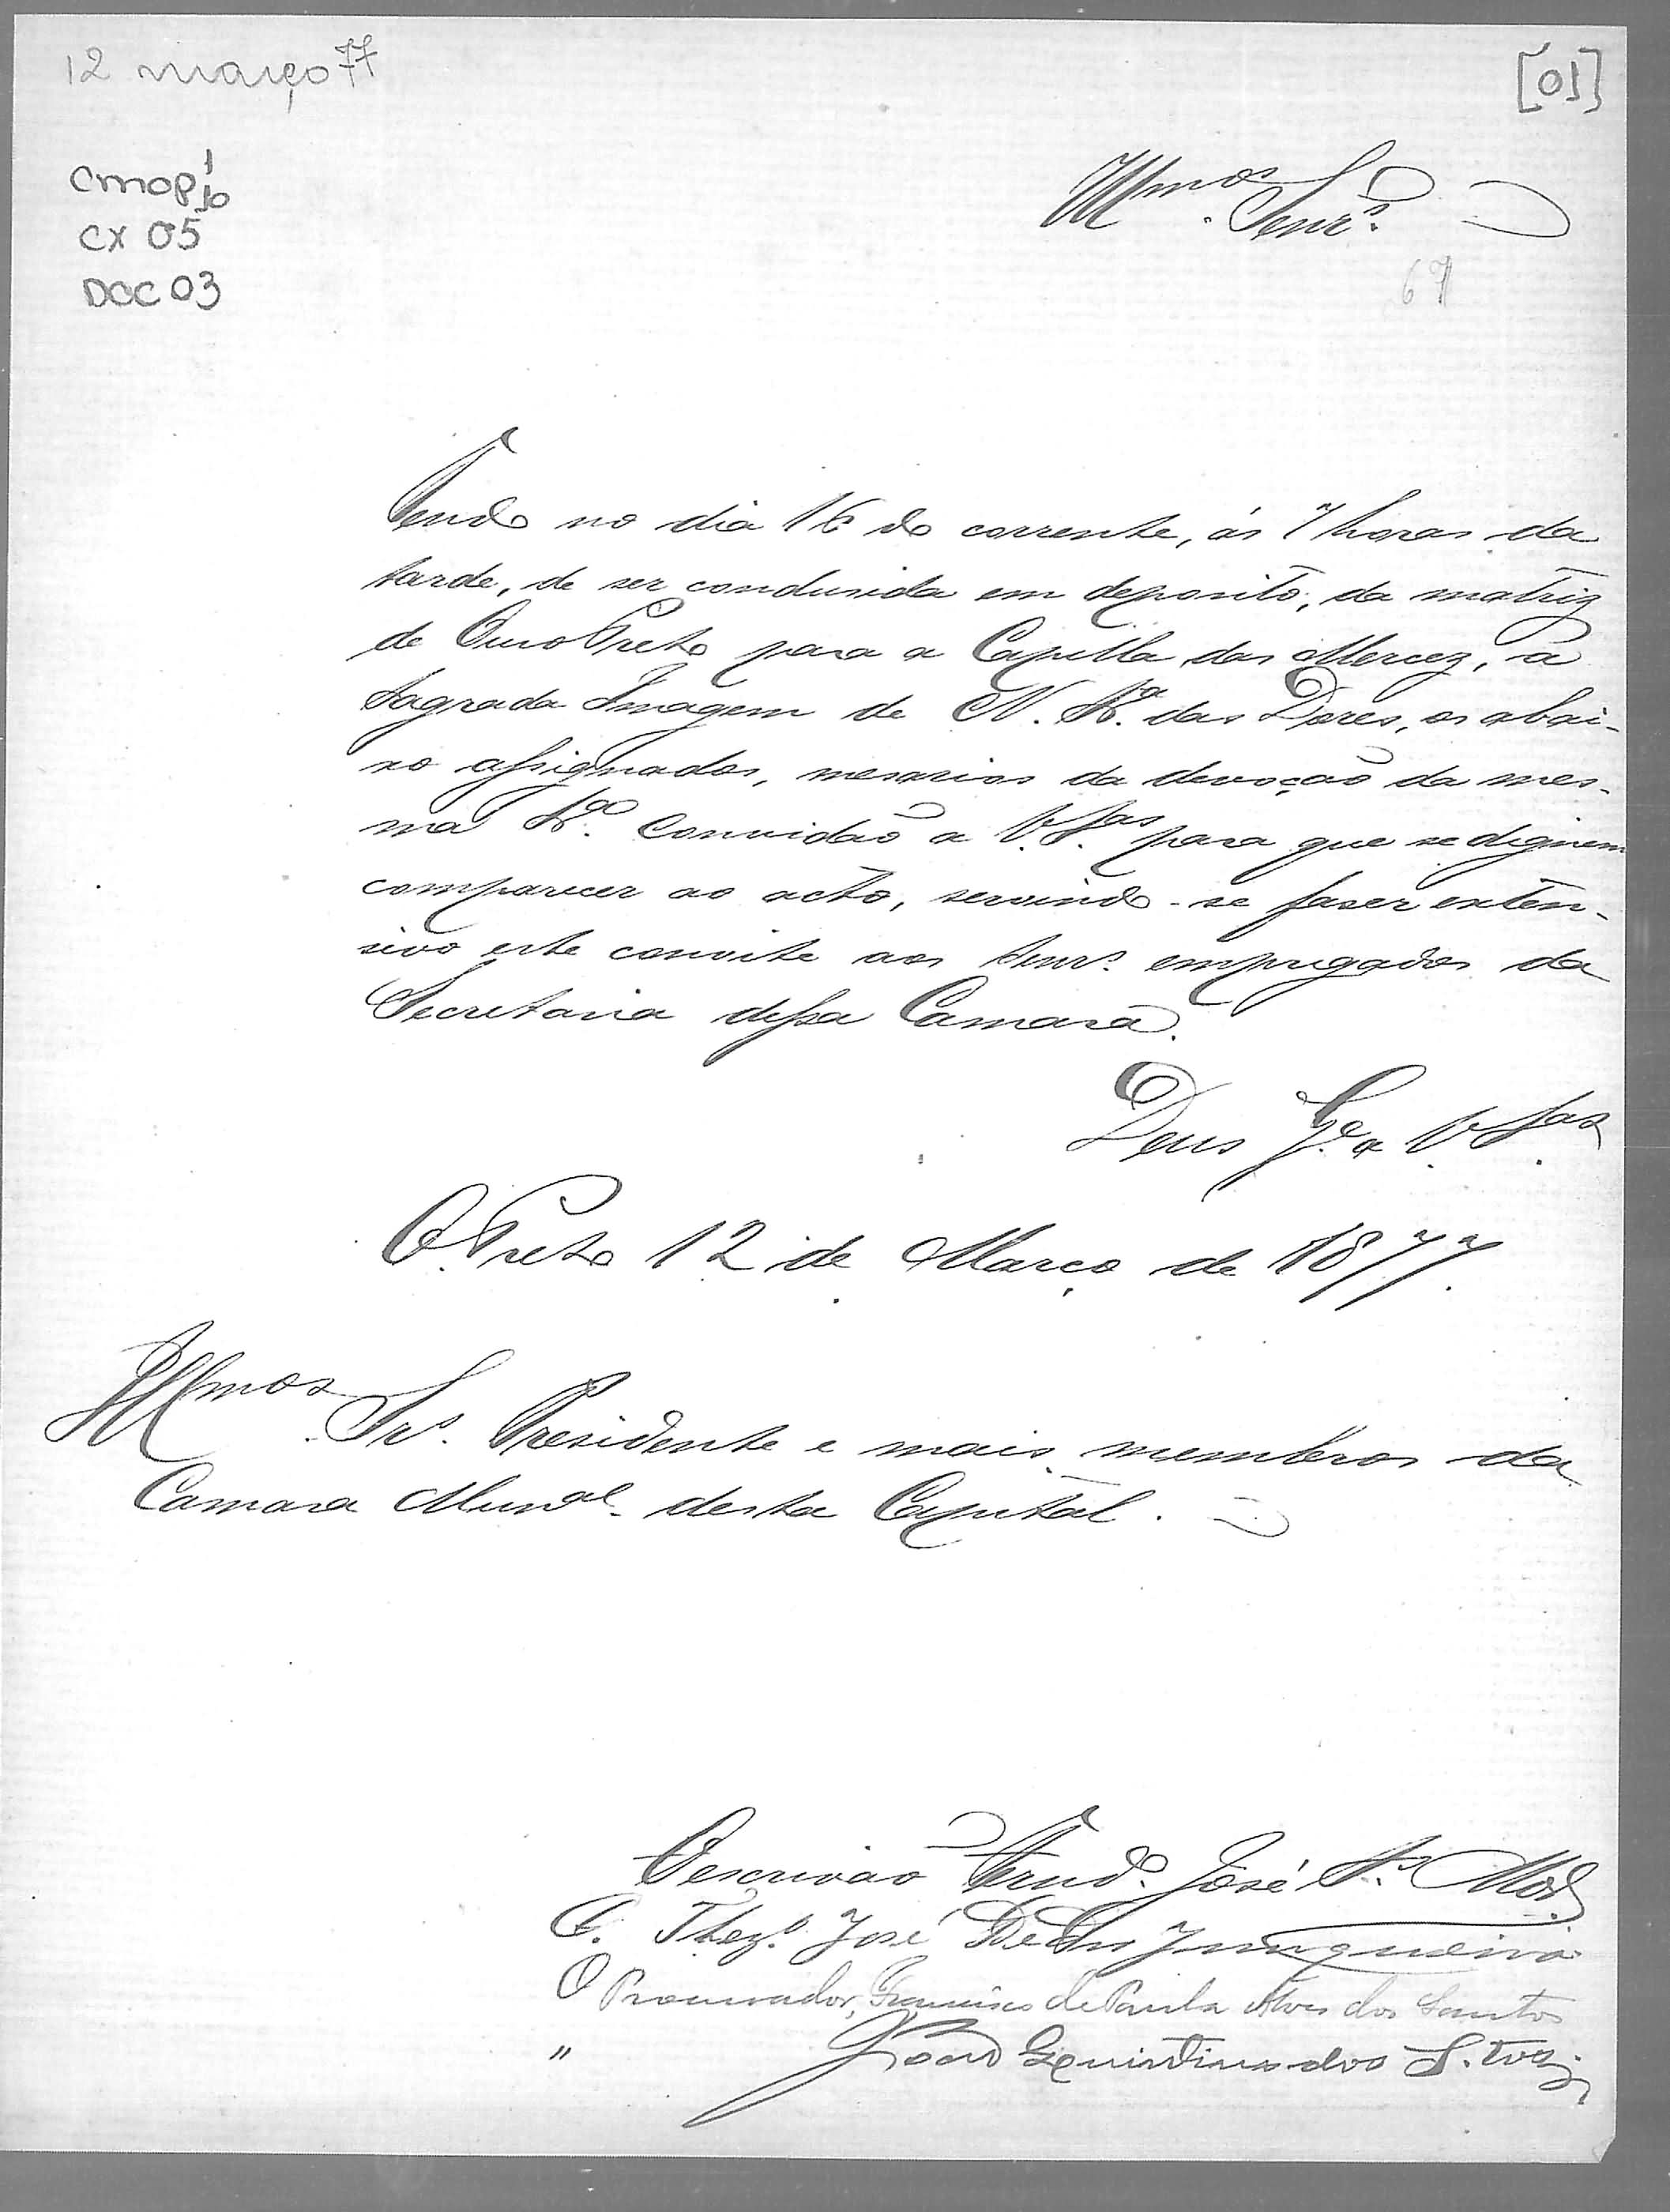 12 março 77
[01]
cmop 1/10
cx 05
DOC 03
Illmos. Senrs.
67
Tendo no dia 16 do corrente, ás 7 horas da
tarde, de ser condusida em deposito, da matriz
de Ouro Preto para a Capella das Mercez, a
Sagrada Imagem de N. Sra. das Dores, os abai-
xo assignados, mesarios da devoção da mes-
ma Sra. convidão a V. Sas. para que se dignem
comparecer ao acto, servindo-se faser exten-
sivo este convite aos Senrs. empregados da
Secretaria dessa Camara.
Deus Ge. a V. Sas.
O. Preto 12 de Março de 1877.
Illmos. Srs. Presidente e mais membros da
Camara Munal. desta Capital.
O escrivão Ferndo. José
O Thezro. José Junqueira
O Procurador, Francisco de Paula Alves dos Santos
" João Quintiano dos S.tos